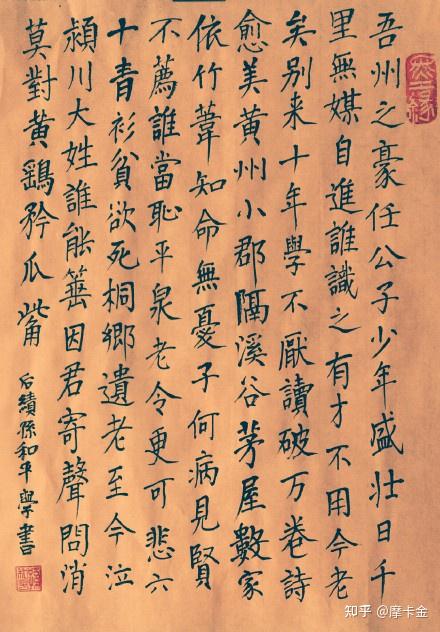 吾州之豪任公子少年盛壯日千
里無媒自進誰識之有才不用今老
矣别来十年學不厭讀破万卷詩
愈美黄州小郡隔溪谷茅屋數家
依竹葦知命無憂子何病見賢
不薦誰當恥平泉老令更可悲六
十青衫貧欲死桐鄉遺老至今泣
潁川大姓誰能箠因君寄聲問消
莫對黄鷂矜爪觜
后績孫和平學書
知乎 @摩卡金